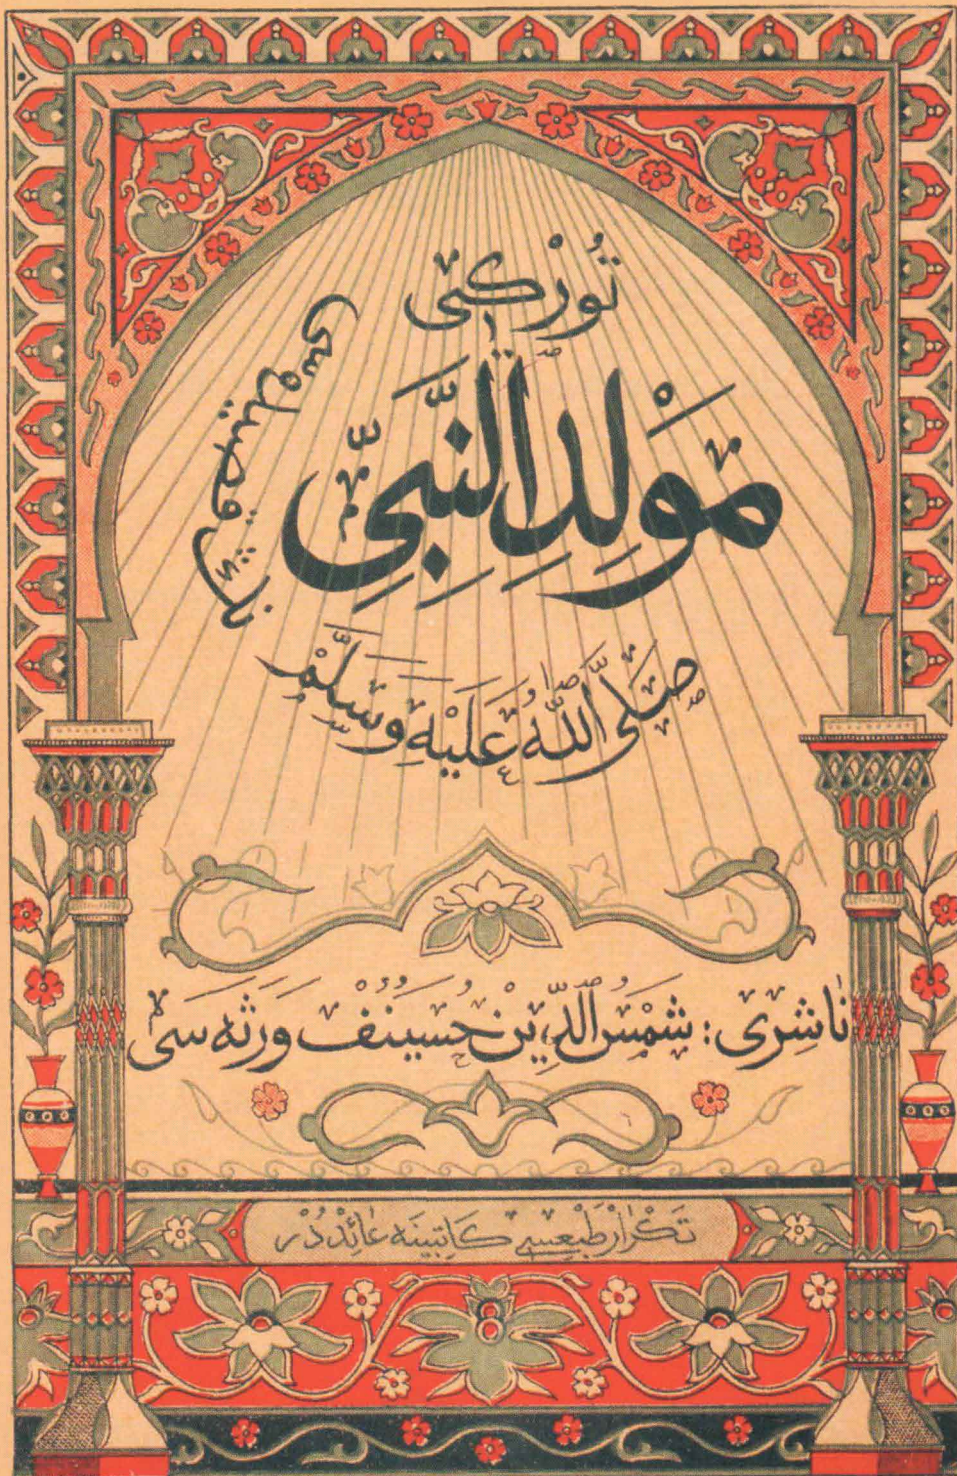 تُورْكِى
مَوْلِدِ النَّبِىِّ
صَلَّى اللّٰهُ عَلَيْهِ وَسَلَّمْ
نٰاشِرى: شَمْسُ الدِّينْ حُسَيْنُفْ وَرَثَه سى
تَكْرٰارْ طَبْعِسى كَاتِبِينَه عٰائِدْدُرْ